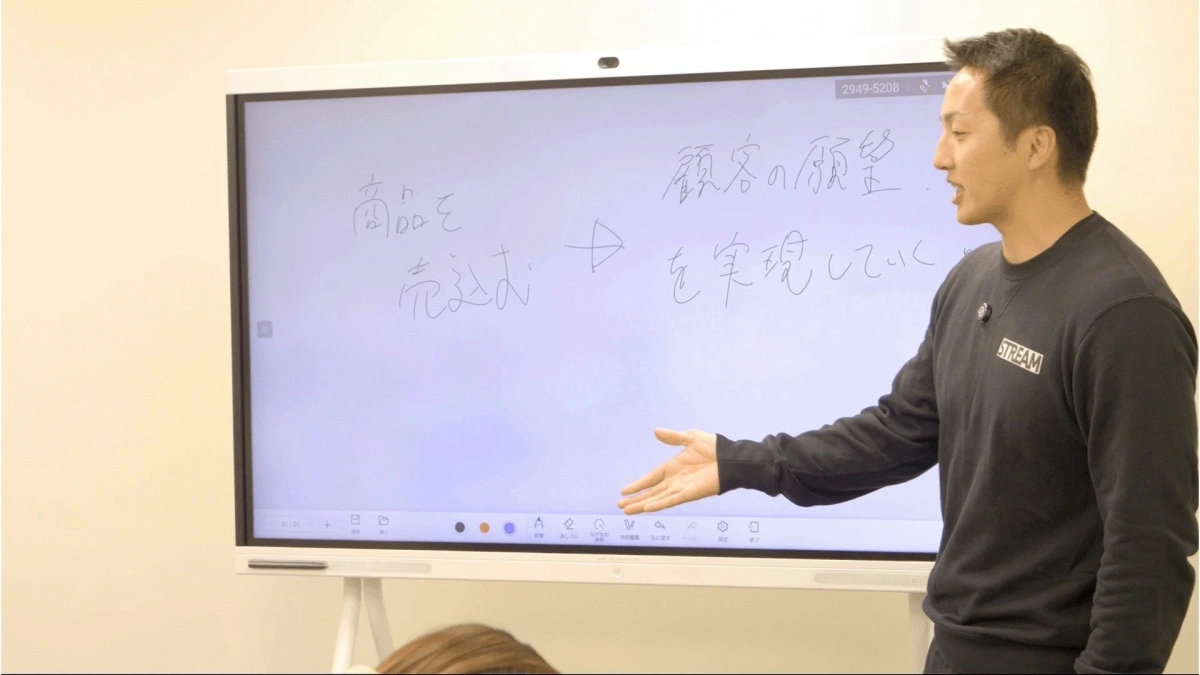 2949-5208
商品を
売込む
顧客の願望
を実現していく
STREAM